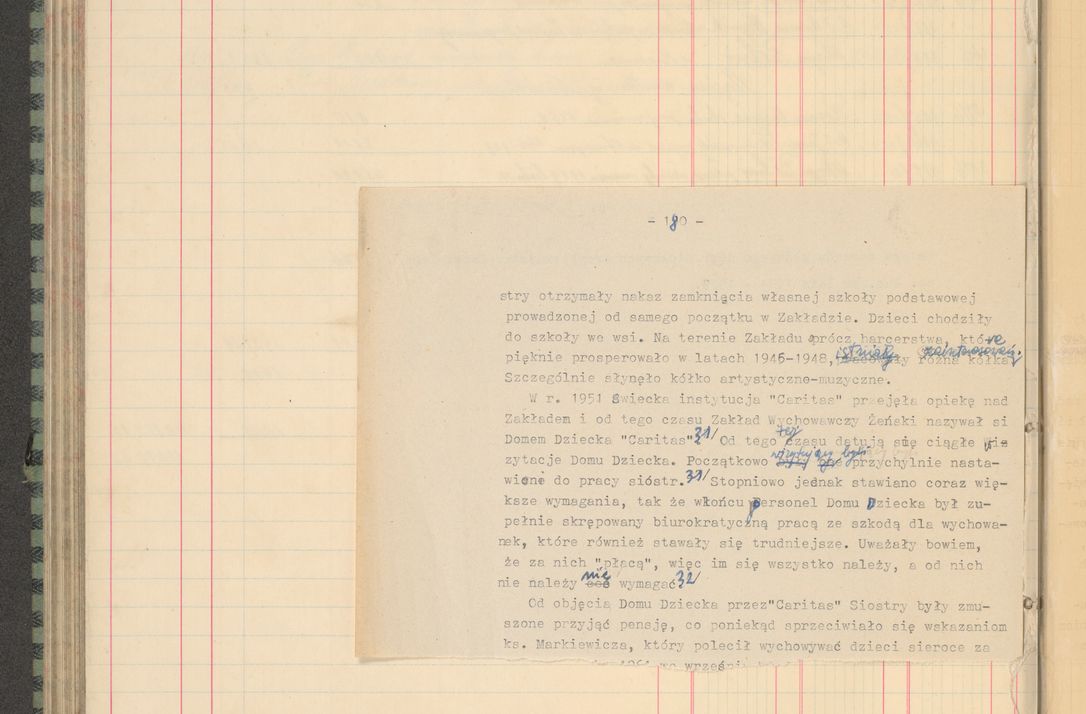 - 180 -
stry otrzymały nakaz zamknięcia własnej szkoły podstawowej
prowadzonej od samego początku w Zakładzie. Dzieci chodziły
do szkoły we wsi. Na terenie Zakładu oprócz harcerstwa, które
pięknie prosperowało w latach 1946-1948, istniały różna kółka zainteresowań.
Szczególnie słynęło kółko artystyczno-muzyczne.
W r. 1951 świecka instytucja "Caritas" przejęła opiekę nad
Zakładem i od tego czasu Zakład Wychowawczy Żeński nazywał si
Domem Dziecka "Caritas" 31/ Od tego też czasu datują się ciągłe wi-
zytacje Domu Dziecka. Początkowo wizytujący byli przychylnie nasta-
wieni do pracy sióstr. 31/ Stopniowo jednak stawiano coraz wię-
ksze wymagania, tak że włońcu personel Domu Dziecka był zu-
pełnie skrępowany biurokratyczną pracą ze szkodą dla wychowa-
nek, które również stawały się trudniejsze. Uważały bowiem,
że za nich "płacą", więc im się wszystko należy, a od nich
nie należy nic wymagać 32/
Od objęcia Domu Dziecka przez"Caritas" Siostry były zmu-
szone przyjąć pensję, co poniekąd sprzeciwiało się wskazaniom
ks. Markiewicza, który polecił wychowywać dzieci sieroce za